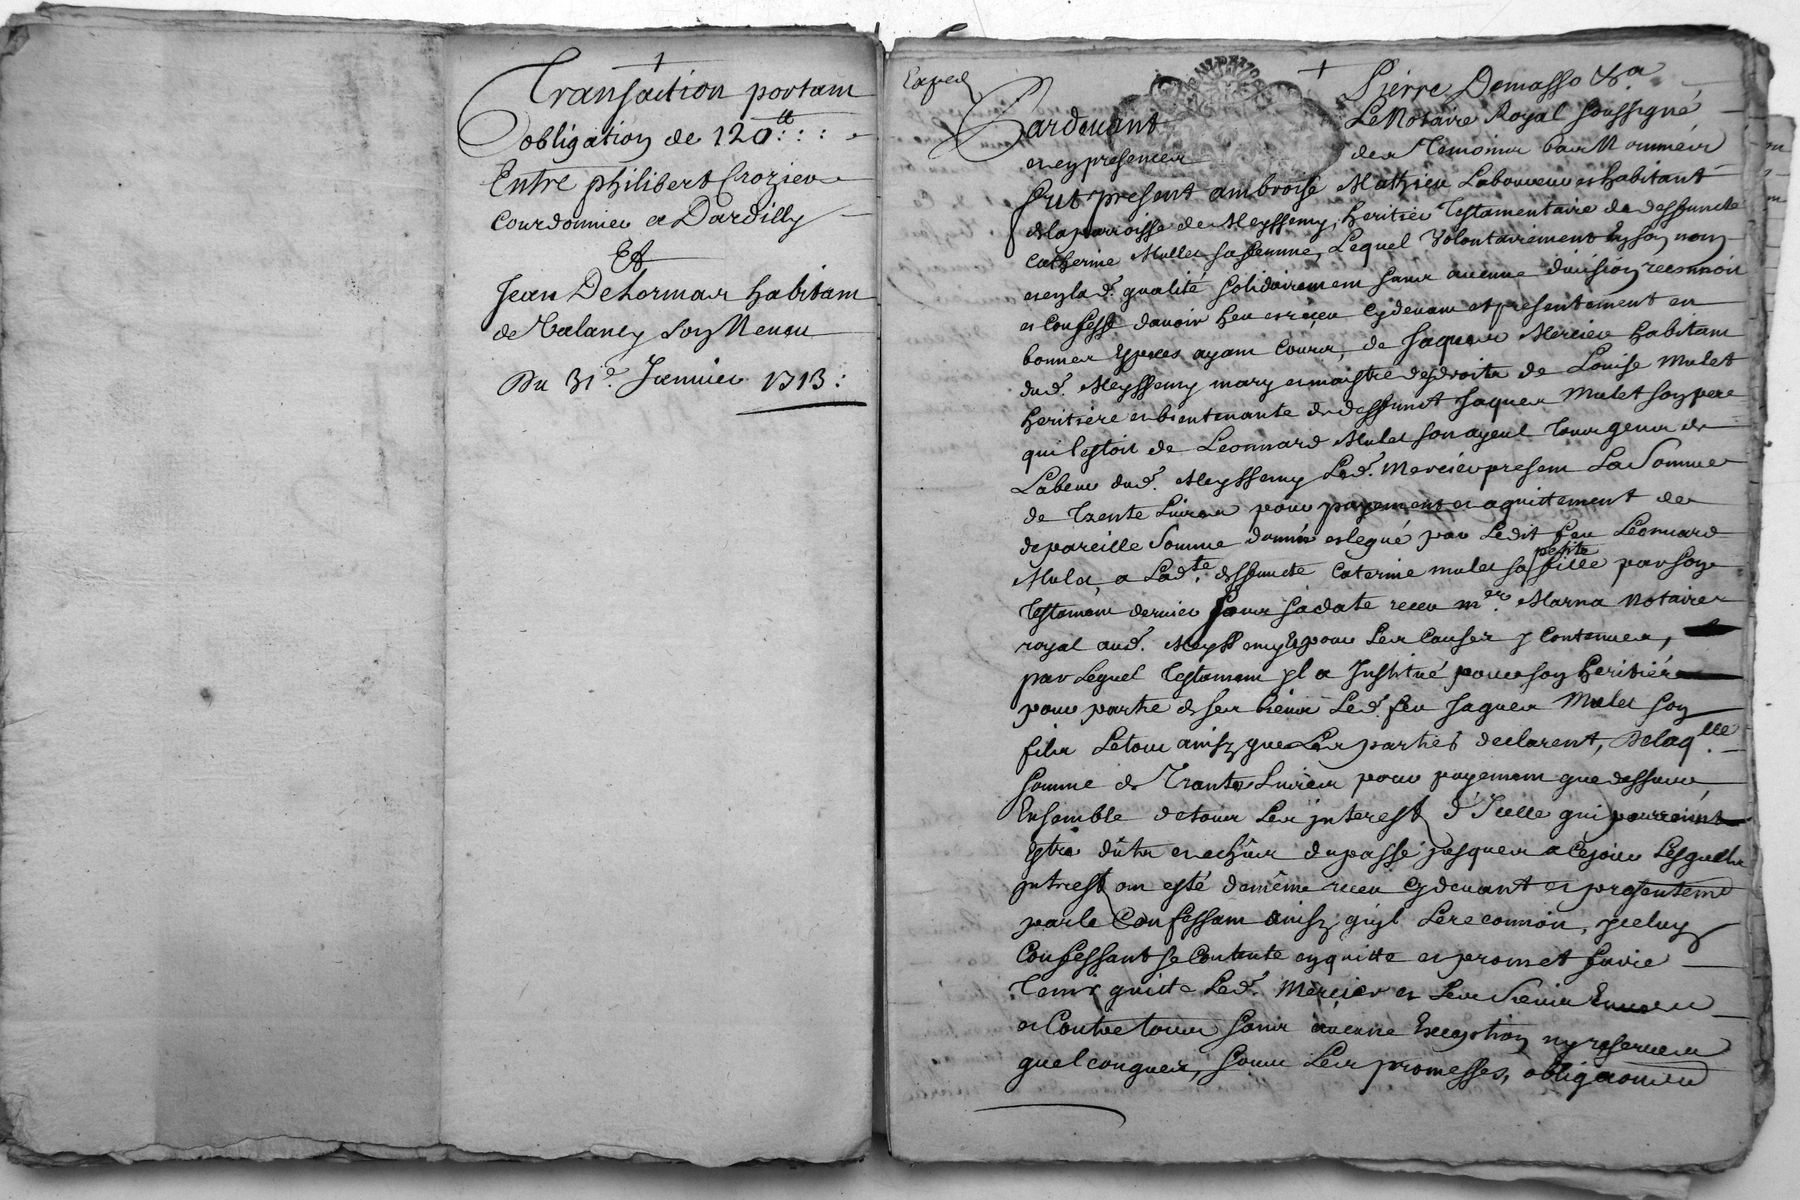 Transaction portant
obligation de 120tt
Entre philibert Crozier
Courdonnier a Dardilly
Et
Jean Delormas habitant
de son Neveu
Du 31e. Janvier 1713:
Exped
Pierre Demasso &a
Pardevant Le Notaire Royal soussigné
et en presence des Temoins bas Nommés
fut present ambroise Mathieu Laboureur habitant
de la parroisse de Meyssemy, heritier Testamentaire de deffuncte
Catherine Mullet sa femme, Lequel Volontairement En son nom
et en lad. qualité solidairement sans aucune division reconnoit
et confesse d'avoir heu et reçeu Cydevant et presentement en
bonnes Especes ayant Cours, de Jaques Mercier habitant
dud. Meyssemy mary et maistre des droits de Louise Mulet
heritiere et bientenante de deffunct Jaques Mulet son pere
qui l'estoit de Leonnard Mulet son ayeul
dud. Meyssemy Led. Mercier present La Somme
de Trente Livres pour payement et aquittement de
de pareille Somme donnée et legué par Ledit feu Leonnard
Mulet a Ladte. deffuncte Caterine mulet sa petite fille par son
Testament dernier sous sa date receu mer. Marna Notaire
royal aud. Meyssemy Et pour Les Causes y Contenues,
par Lequel Testament yl a Institué pour son heritier
pour partie de ses biens Led. feu Jaques Mulet son
fils Le tout ainsy que Les parties declarent, De laqlle.
somme de Trante Livres pour payement que dessus,
Ensemble de tous Les interest d'Icelle qui pourroint
Estre dûbs et echûs du passé jusques a ce jour Lesquels
intrest ont esté de même receu Cy devant et presentemt
par le Confessant ainsy qu'yl Le reconnoit, yceluy
Confessant se Contente en quitte et promet faire
Tenir quitte Led. Mercier et Les siens Envers
et Contre tous sans aucune Exception ny reserves
quelconques, sous Les promesses, obligations